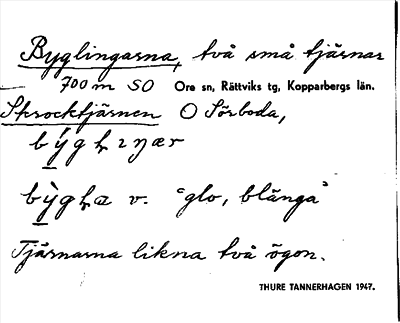 Byglingarna, två små tjärnar
700 m SO Ore sn, Rättviks tg, Kopparbergs län.
Skrocktjärnen O Sörboda,
býgḷɩŋær
bỳgḷæ v. "glo, blänga"
Tjärnarna likna två ögon.
THURE TANNERHAGEN 1947.